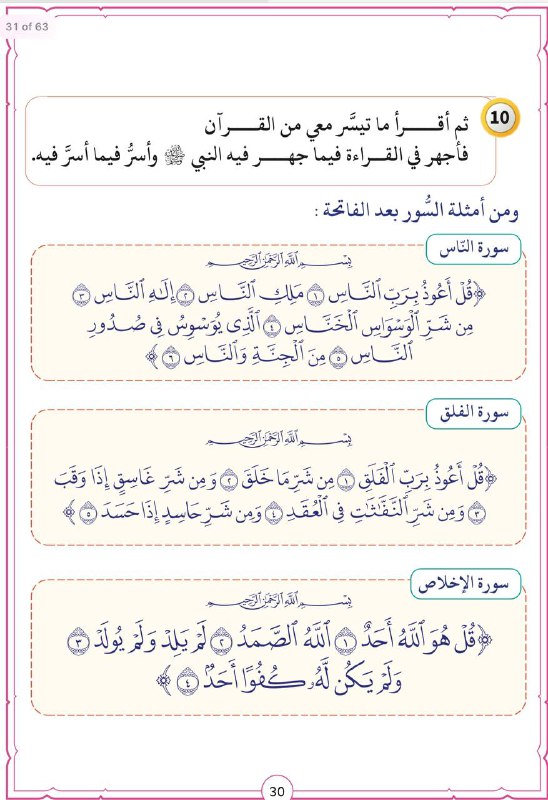 31 of 63
10
ثم أقـــرأ ما تيسَّر معي من القـــرآن
فأجهر في القـراءة فيما جهـــر فيه النبي ﷺ وأسرُّ فيما أسرَّ فيه.
ومن أمثلة السُّور بعد الفاتحة :
سورة النّاس
بِسْمِ ٱللَّهِ ٱلرَّحْمَٰنِ ٱلرَّحِيمِ
﴿قُلْ أَعُوذُ بِرَبِّ ٱلنَّاسِ ١ مَلِكِ ٱلنَّاسِ ٢ إِلَٰهِ ٱلنَّاسِ ٣
مِن شَرِّ ٱلْوَسْوَاسِ ٱلْخَنَّاسِ ٤ ٱلَّذِى يُوَسْوِسُ فِى صُدُورِ
ٱلنَّاسِ ٥ مِنَ ٱلْجِنَّةِ وَٱلنَّاسِ ٦﴾
سورة الفلق
بِسْمِ ٱللَّهِ ٱلرَّحْمَٰنِ ٱلرَّحِيمِ
﴿قُلْ أَعُوذُ بِرَبِّ ٱلْفَلَقِ ١ مِن شَرِّ مَا خَلَقَ ٢ وَمِن شَرِّ غَاسِقٍ إِذَا وَقَبَ
٣ وَمِن شَرِّ ٱلنَّفَّٰثَٰتِ فِى ٱلْعُقَدِ ٤ وَمِن شَرِّ حَاسِدٍ إِذَا حَسَدَ ٥﴾
سورة الإخلاص
بِسْمِ ٱللَّهِ ٱلرَّحْمَٰنِ ٱلرَّحِيمِ
﴿قُلْ هُوَ ٱللَّهُ أَحَدٌ ١ ٱللَّهُ ٱلصَّمَدُ ٢ لَمْ يَلِدْ وَلَمْ يُولَدْ ٣
وَلَمْ يَكُن لَّهُۥ كُفُوًا أَحَدٌۢ ٤﴾
30